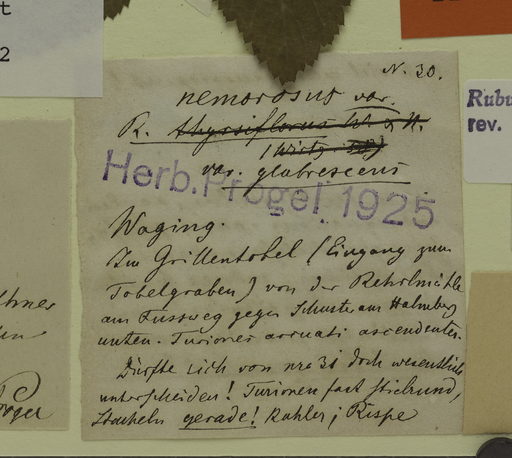 t
2
N. 30.
nemorosus var.
R. thyrsiflorus W. & N.
var. glabrescens
Herb. Progel 1925
Waging.
Im Grillentobel (Eingang zum
Tobelgraben) von der Rehrlmühle
am Fussweg gegen Schuster am Halmberg
unten. Turiones arcuati ascendentes.
Dürfte sich von nro 31 doch wesentlich
unterscheiden! Turionen fast stielrund,
Stacheln gerade! Kahler, Rispe
Rubu
rev.